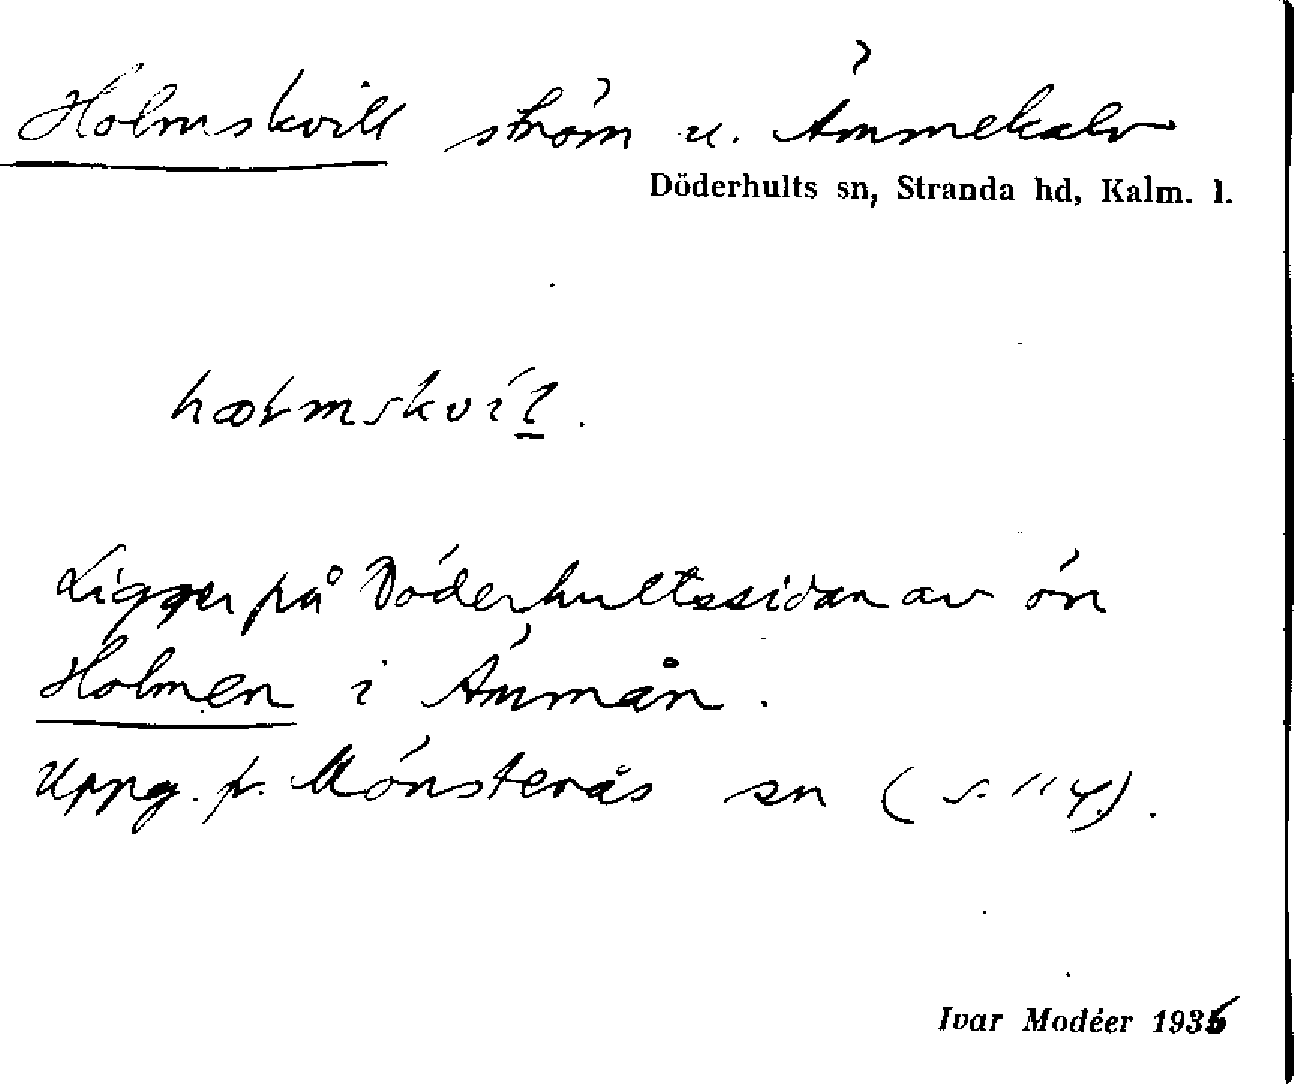 Holmskvill ström u. Ämmekalv
Döderhults sn, Stranda hd, Kalm. l.
Ligger på Döderhultssidan av ön
Holmen i Ämmån.
Uppg. fr. Mönsterås sn (s. 114).
Ivar Modéer 1936